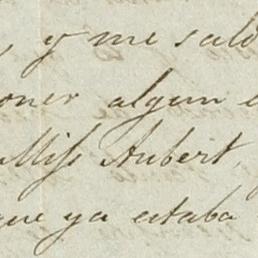 , y me sal
oner algun
Miss Aubert,
que ya estaba